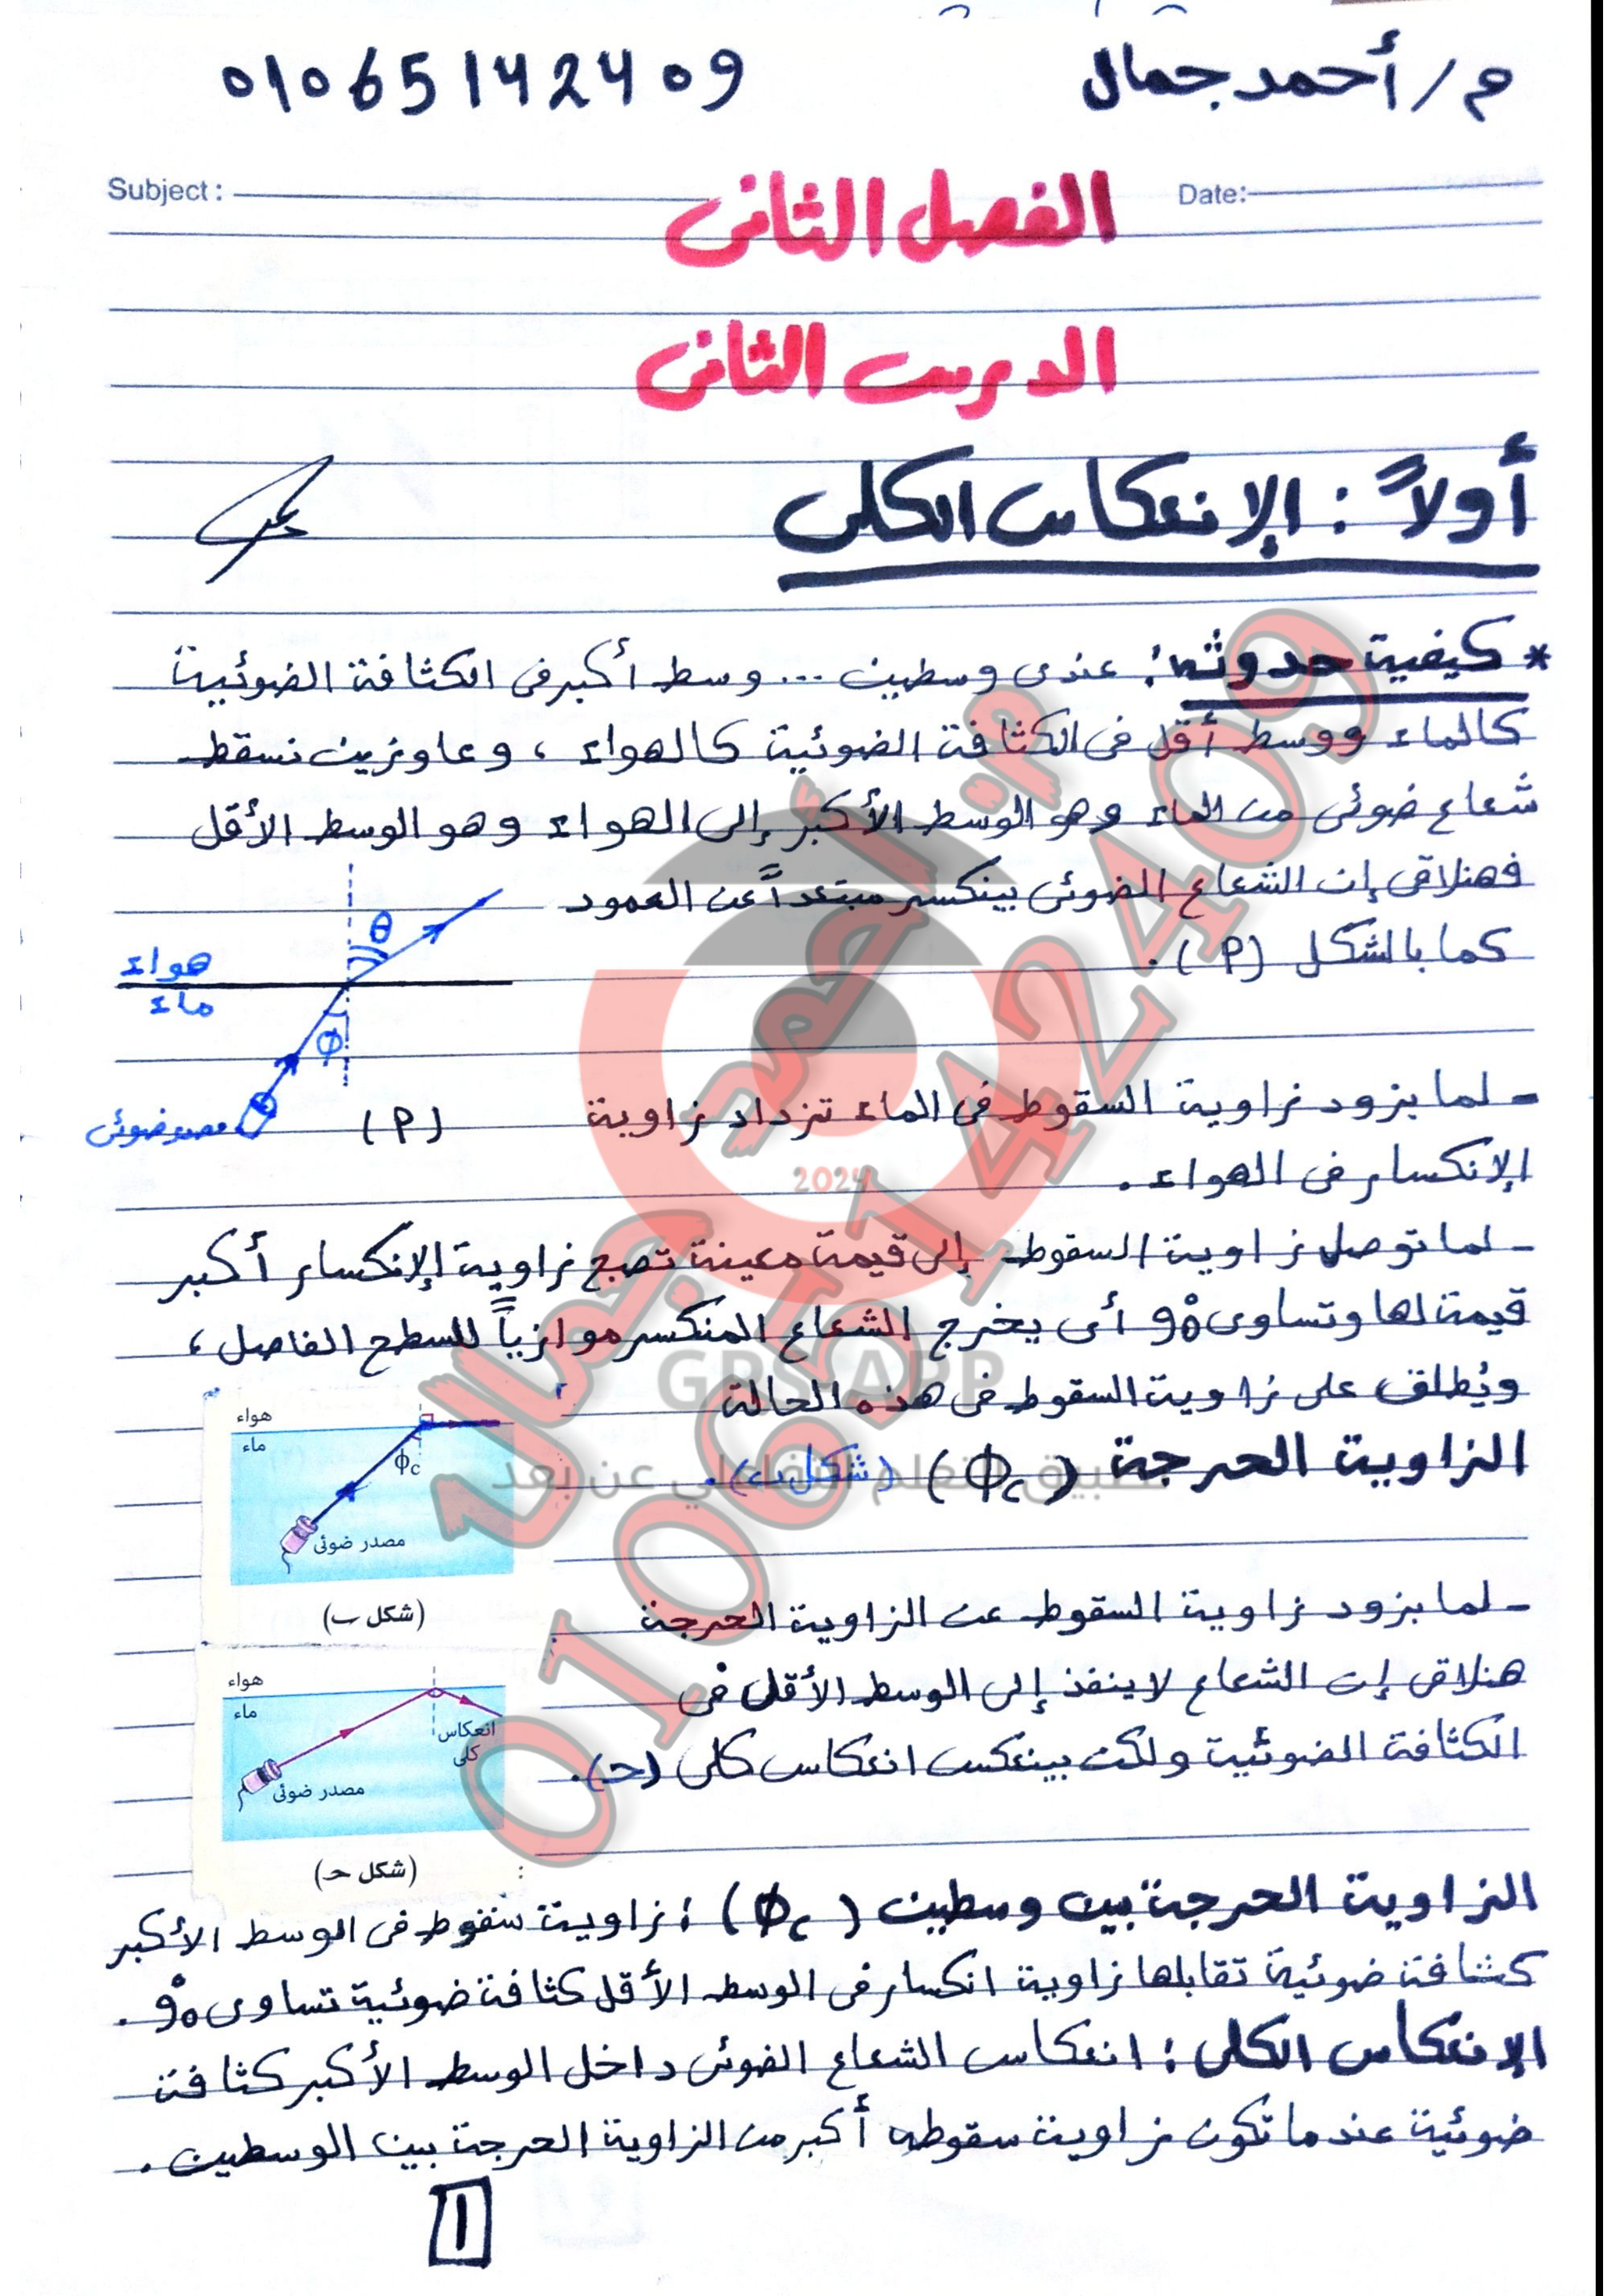 م/أحمد جمال
01065142409
Subject:
Date:
الفصل الثانى
الدرس الثانى
أولاً: الإنعكاس الكلى
* كيفية حدوثه: عندى وسطين ... وسط أكبر فى الكثافة الضوئية
كالماء ووسط أقل فى الكثافة الضوئية كالهواء ، وعاوزين نسقط
شعاع ضوئى من الماء وهو الوسط الأكبر إلى الهواء وهو الوسط الأقل
فهنلاقى إن الشعاع الضوئى بينكسر مبتعداً عن العمود
كما بالشكل (P).
θ
هواء
ماء
Φ
مصدر ضوئى
(P)
- لما بزود زاوية السقوط فى الماء تزداد زاوية
الإنكسار فى الهواء.
- لما توصل زاوية السقوط إلى قيمة معينة تصبح زاوية الإنكسار أكبر
قيمة لها وتساوى 90° أى يخرج الشعاع المنكسر موازياً للسطح الفاصل ،
ويُطلق على زاوية السقوط فى هذه الحالة
الزاوية الحرجة (Φc) (شكل ب).
هواء
ماء
ϕc
مصدر ضوئى
(شكل ب)
- لما بزود زاوية السقوط عن الزاوية الحرجة
هنلاقى إن الشعاع لا ينفذ إلى الوسط الأقل فى
الكثافة الضوئية ولكن بينعكس انعكاس كلى (حـ).
هواء
ماء
انعكاس
كلى
مصدر ضوئى
(شكل حـ)
الزاوية الحرجة بين وسطين (Φc) : زاوية سقوط فى الوسط الأكبر
كثافة ضوئية تقابلها زاوية انكسار فى الوسط الأقل كثافة ضوئية تساوى 90°.
الإنعكاس الكلى : انعكاس الشعاع الضوئى داخل الوسط الأكبر كثافة
ضوئية عندما تكون زاوية سقوطه أكبر من الزاوية الحرجة بين الوسطين.
1
م/أحمد جمال
01065142409
2024
GPS APP
تطبيق التعلم التفاعلي عن بعد